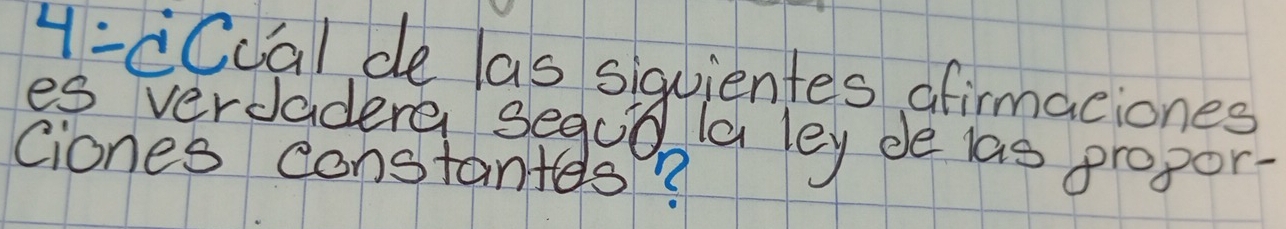 4-¿Cuál de las siguientes afirmaciones
es verdadera según la ley de las propor-
ciones constantes?